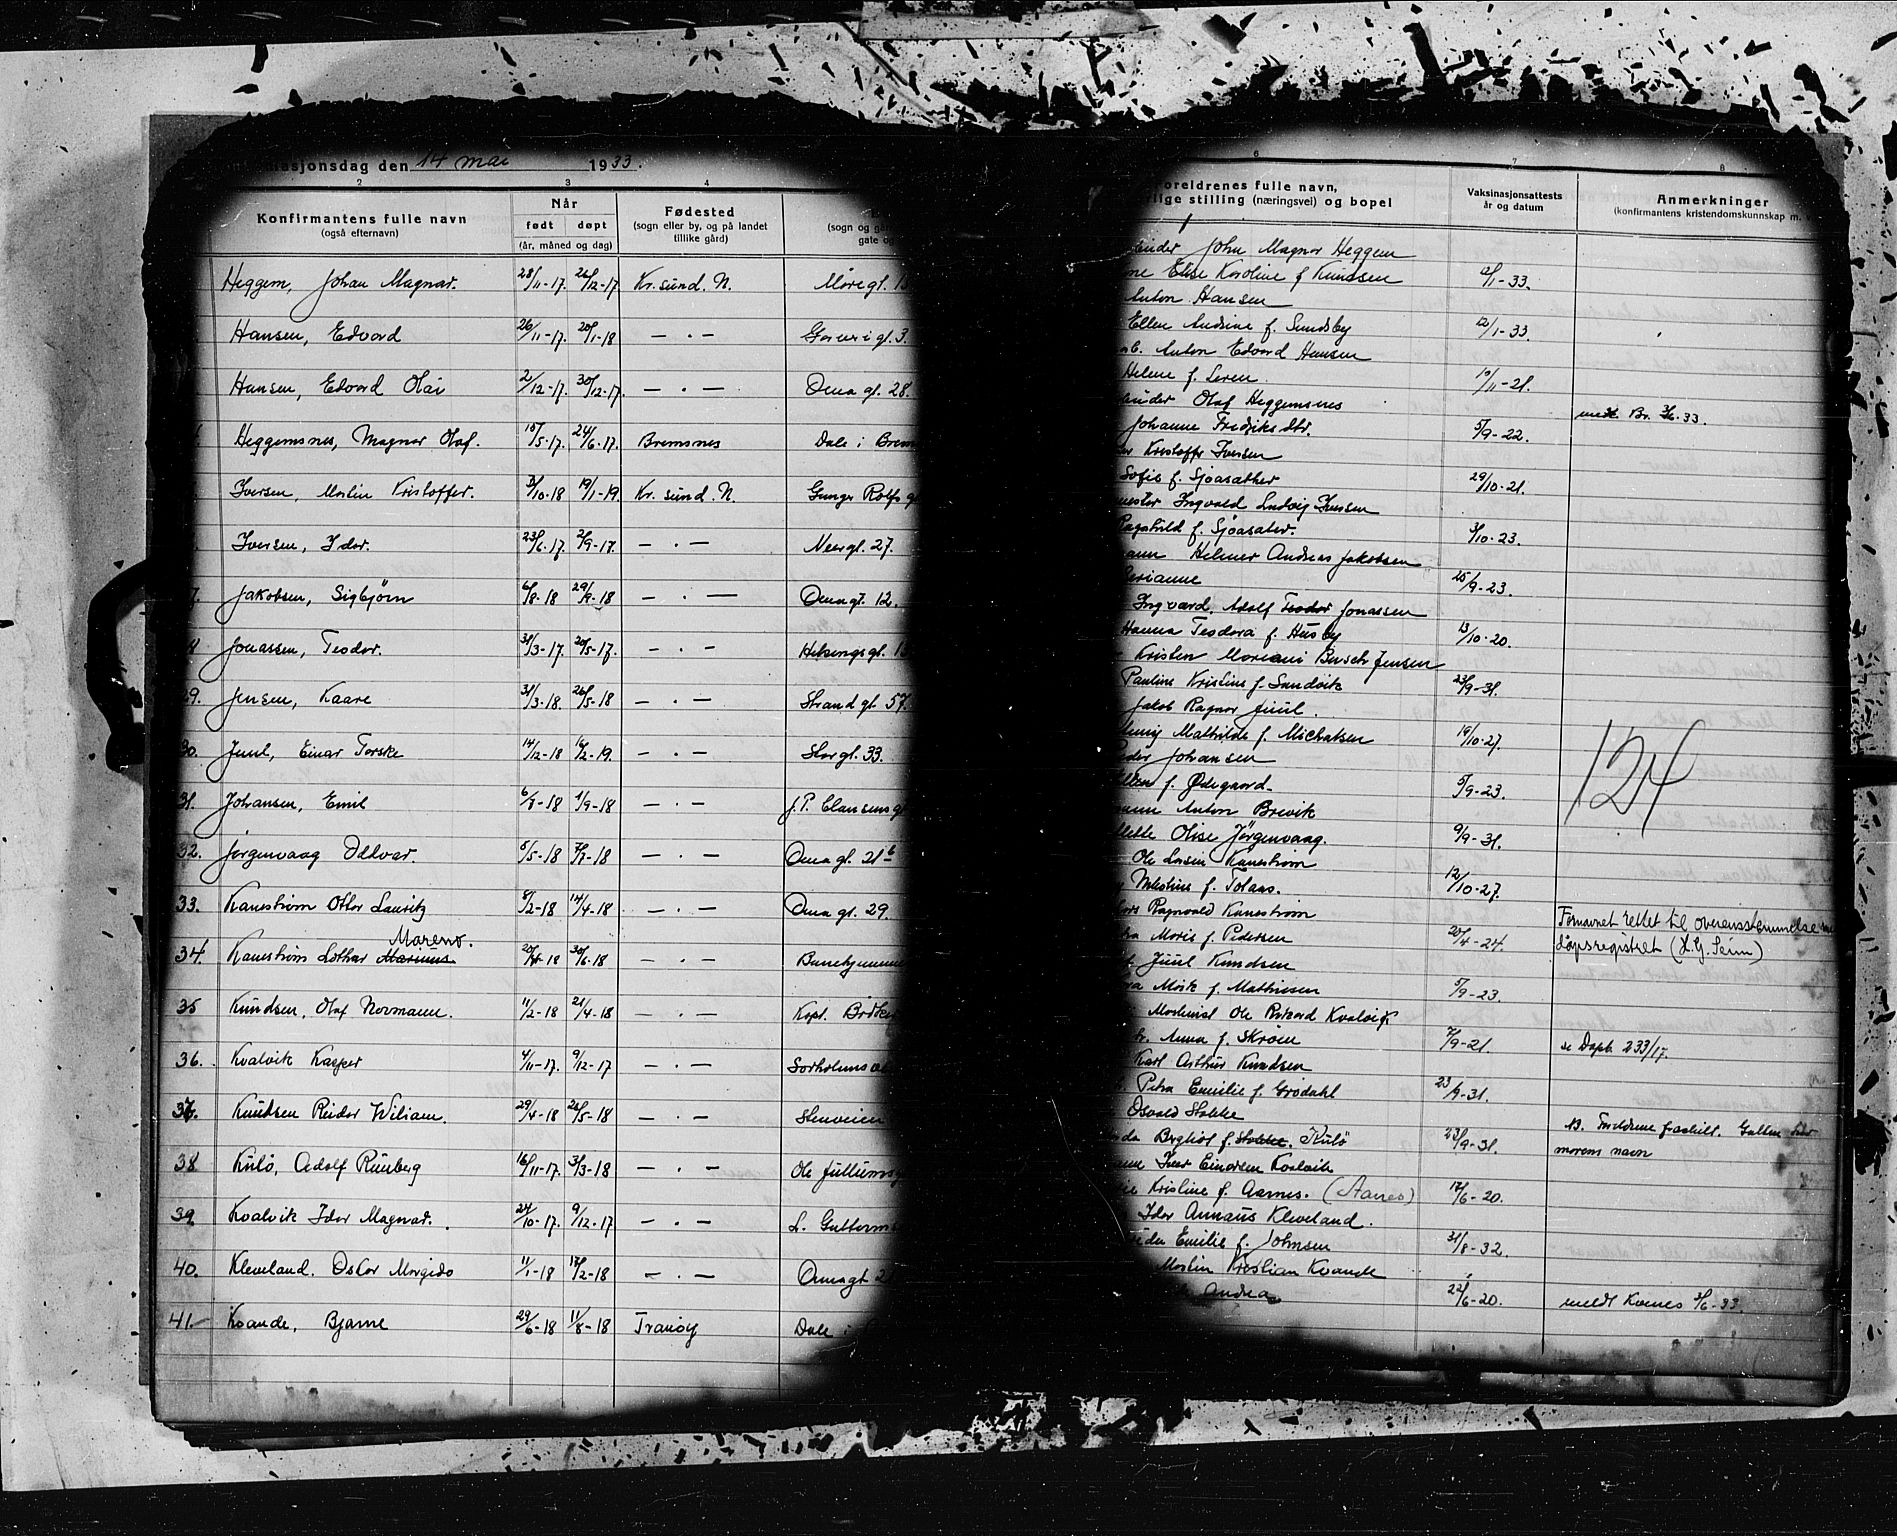 asjonsdag den 14 mai 1933.
2 3 4 6 7 8
Konfirmantens fulle navn
(også efternavn)
Når
født døpt
(år, måned og dag)
Fødested
(sogn eller by, og på landet
tillike gård)
(sogn og
gate og
oreldrenes fulle navn,
lige stilling (næringsvei) og bopel
Vaksinasjonsattests
år og datum
Anmerkninger
(konfirmantens kristendomskunnskap m. v
Heggem, Johan Magnar. 28/11-17. 26/12-17 Kr.sund. N. Møregt. 1
John Magnar Heggem
Elise Karoline f Knudsen /1-33.
Hansen, Edvard 26/11-17. 20/1-18 — · — gt. 3.
Anton Hansen
Ellen Andrine f. Sundsby 12/1-33.
Hansen, Edvard Olai 2/12-17. 30/12-17. — · — Oma gt. 28.
Anton Edvard Hansen
Helene f. Leren. 19/11-21.
Heggemsnes, Magnar Olaf. 15/5-17. 24/6-17. Bremsnes Dale i Brem
Olaf Heggemsnes
Johanne Fredriksdtr. 5/9-22. Br. 3/6.33.
Iversen, Martin Kristoffer. 3/10-18 19/1-19. Kr.sund. N. Ganger Rolfs g
Kristoffr Iversen
Sofie f. Sjøasæther 29/10-21.
Iversen, Idar. 23/6.17. 2/9-17. — · — gt. 27.
Ingvald Ludvig Iversen
Ragnhild f. Sjøasæter. 3/10-23.
7. Jakobsen, Sigbjørn 6/8-18 29/9-18 — · — Oma gt. 12.
Helmer Andreas Jakobsen
Berianne 25/9-23.
8 Jonassen, Teodor. 31/3-17. 20/5-17. — · — gt. 1
Ingvard. Adolf Teodor Jonassen
Hanna Teodora f. Husby 13/10-20.
29. Jensen, Kaare 31/3-18. 26/5-18 — · — Strand gt 57.
Kristen Mariani Busch Jensen
Pauline Kristine f. Sandvik 23/9-31.
30. Juul, Einar Torske 14/12-18 16/2-19. — · — Stor gt. 33.
Jakob Ragnar Juul.
Mathilde f. Michalsen 19/10-27.
31. Johansen, Emil 6/7-18 1/9-18 — · — J. P. Clausens gt
Johansen
f. Ødegaard. 5/9-23.
124
32. Jørgenvaag Oddvar. 5/5-18 7/7-18 — · — Oma gt. 21b
Anton Brevik
Olise Jørgenvaag. 9/9-31.
33. Kanestrøm Ottar Lauritz 8/2-18 14/4-18 — · — Oma gt. 29.
Ole Larsen Kanestrøm
f. Tolaas. 12/10-27.
34. Kanestrøm Lothar Marius Mareno. 20/4-18 30/6-18 — · —
Ragnvald Kanestrøm
Marie f. Pedersen 20/4-24. Fornavnet rettet til overensstemmelse m
døpsregistret (K.G. Seim)
35 Knudsen, Olaf Normann. 11/2-18 21/4-18 — · — Kapt. Bødtker
Juul Knudsen
Mørk f. Mathiesen 5/9-23.
36. Kvalvik Kasper 4/11-17. 9/12-17 — · — Sørholms
Maskinist Ole Rikard Kvalvik
Anna f. Skrøen 7/9-21. se Døpt. 233/17.
37. Knudsen Reidar Wiliam. 29/4-18 26/5-18 — · — Stenveien
Karl Arthur Knudsen
Petra Emilie f. Grødahl 23/9-31.
38 Kulø, Adolf Runberg 16/11-17. 31/3-18 — · — Ole Jullums g
Osvald Stokke
Bergliot f. Stokke. Kulø 23/9-31. B. Foreldrene fraskilt. Gutten
morens navn
39 Kvalvik Idar Magnar. 24/10-17. 9/12-17 — · — L. Guttorms
Iver Einarsen Kvalvik
Kristine f. Aarnes. (Aanes) 17/6-20.
40. Kleveland. Oskar Margido 11/1-18 17/2-18 — · — Oma gt 2
Idar Annaus Kleveland.
Emilie f. Johnsen 31/8-32.
41. Kvande, Bjarne 29/6-18 11/8-18 Tranøy Dale i
Martin Kristian Kvande
Andrea 22/6-20. meldt Kvernes 3/6-33.